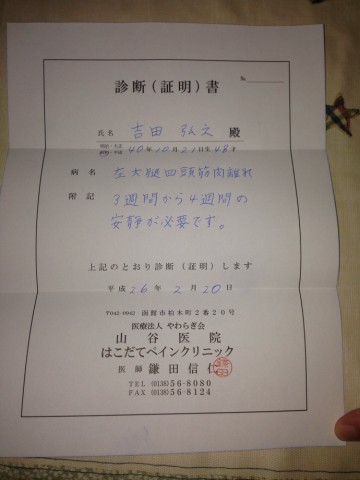 診断(証明)書
No.
氏名 吉田 弘文 殿
明治・大正
昭和・平成 40年10月21日生 48才
病名 左大腿四頭筋肉離れ
附記 3週間から4週間の
安静が必要です。
上記のとおり診断(証明)します
平成 26年 2月 20日
〒042-0942 函館市柏木町2番20号
医療法人 やわらぎ会
山谷医院
はこだてペインクリニック
医師 鎌田信仁
TEL (0138)56-8080
FAX (0138)56-8124